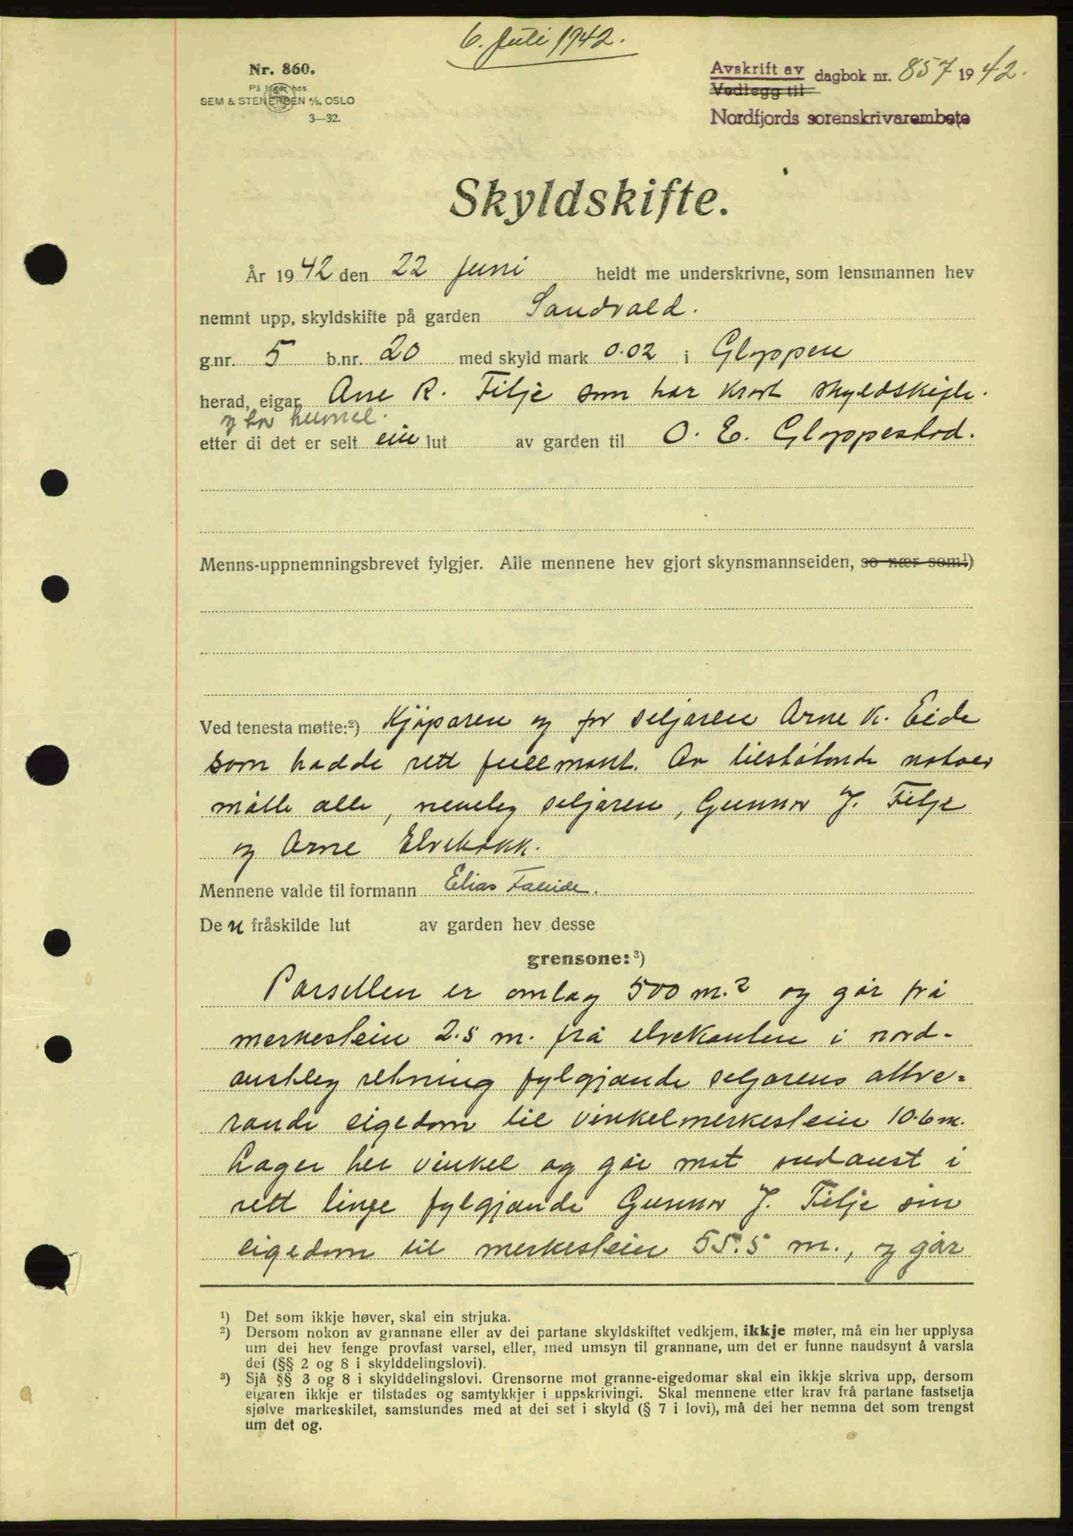 6. Juli 1942.
Nr. 860.
På lager hos
SEM & STENERSEN A/S, OSLO
3—32.
Avskrift av dagbok nr. 857 1942.
Vedlegg til
Nordfjords sorenskrivarembete
Skyldskifte.
År 1942 den 22 juni heldt me underskrivne, som lensmannen hev
nemnt upp, skyldskifte på garden Sandvald.
g.nr. 5 b.nr. 20 med skyld mark 0.02 i Gloppen
herad, eigar Ane R. Felje som har kravt skyldskifte.
og har heimel.
etter di det er selt ein lut av garden til O. E. Gloppestad.
Menns-uppnemningsbrevet fylgjer. Alle mennene hev gjort skynsmannseiden, so nær som¹)
Ved tenesta møtte:²) Kjøparen og for seljaren Arne K. Eide
som hadde rett fullmakt. Av tilstøtande naboer
møtte alle, nemleg seljaren, Gunnar J. Felje
og Arne Elvebakk.
Mennene valde til formann Elias Faleide.
Den fråskilde lut av garden hev desse
grensone:³)
Parsellen er omlag 500 m.² og går frå
merkestein 2.5 m. frå elvekanten i nord-
austleg retning fylgjande seljarens attve=
rande eigedom til vinkelmerkestein 10.6 m.
Lager her vinkel og går mot sudaust i
rett linje fylgjande Gunnar J. Felje sin
eigedom til merkestein 55.5 m., og går
¹) Det som ikkje høver, skal ein strjuka.
²) Dersom nokon av grannane eller av dei partane skyldskiftet vedkjem, ikkje møter, må ein her upplysa
um dei hev fenge provfast varsel, eller, med umsyn til grannane, um det er funne naudsynt å varsla
dei (§§ 2 og 8 i skylddelingslovi).
³) Sjå §§ 3 og 8 i skylddelingslovi. Grensorne mot granne-eigedomar skal ein ikkje skriva upp, dersom
eigaren ikkje er tilstades og samtykkjer i uppskrivingi. Skal mennene etter krav frå partane fastsetja
sjølve markeskilet, samstundes med at dei set i skyld (§ 7 i lovi), må dei her nemna det som trengst
um det og.